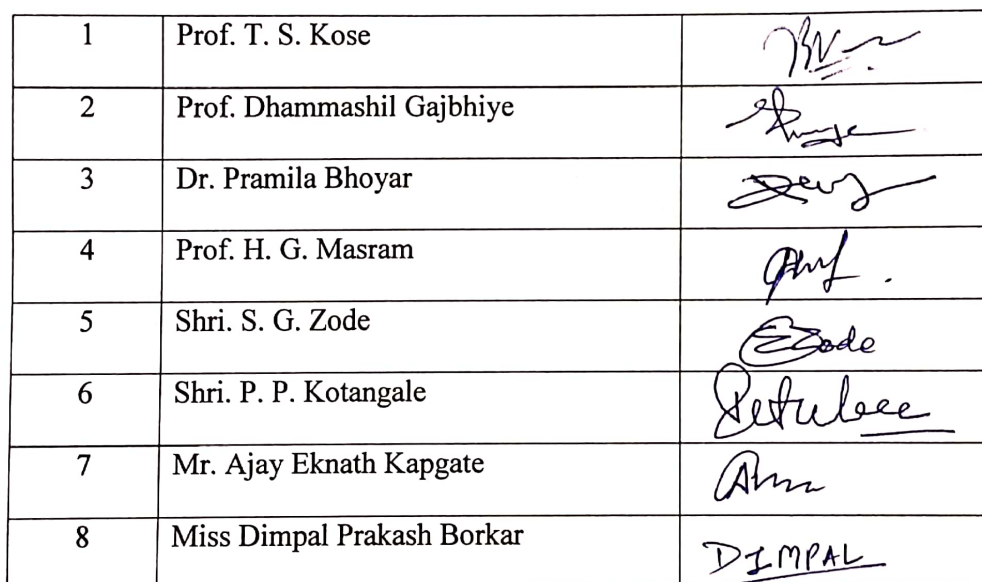 1 Prof. T. S. Kose
2 Prof. Dhammashil Gajbhiye
3 Dr. Pramila Bhoyar
4 Prof. H. G. Masram
5 Shri. S. G. Zode Zode
6 Shri. P. P. Kotangale
7 Mr. Ajay Eknath Kapgate
8 Miss Dimpal Prakash Borkar DIMPAL